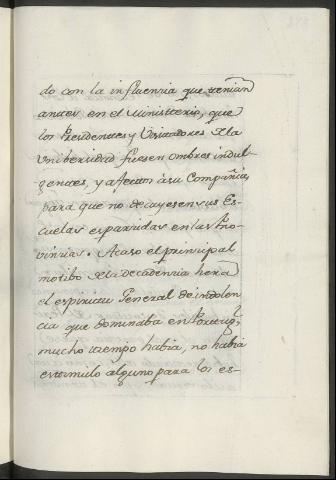 do con la influencia que tenian
antes en el Ministerio, que
los Presidentes y Visitadores de la
Unibersidad fuesen ombres indul-
gentes, y afectos à su Compañia,
para que no decayesen sus Es-
cuelas esparcidas en las Pro-
vincias. Acaso el principal
motibo de la decadencia hera
el espiritu General de indolen-
cia que dominaba en Portugl.
mucho tiempo habia, no habia
estimulo alguno para los es-